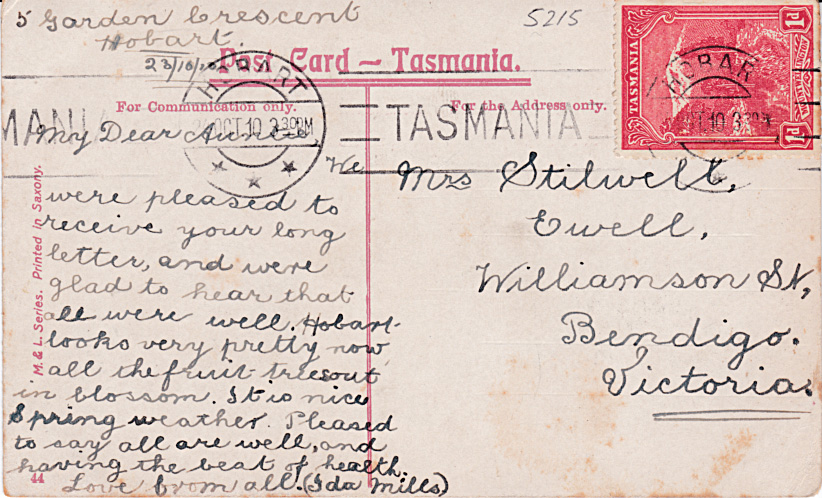 5 Garden Crescent
Hobart.
23/10/10
5215
Post Card ~ Tasmania.
For Communication only.
For the Address only.
HOBART
OCT 10 3.30PM
MANIA
TASMANIA
HOBAR
10 3.30PM
TASMANIA
1d
1d
My Dear Auntie
We
were pleased to
receive your long
letter, and were
glad to hear that
all were well. Hobart
looks very pretty now
all the fruit trees out
in blossom. It is nice
Spring weather. Pleased
to say all are well, and
having the best of health.
Love from all. (Ida Mills)
Mrs Stilwell,
Ewell,
Williamson St,
Bendigo.
Victoria.
M. & L. Series. Printed in Saxony.
44